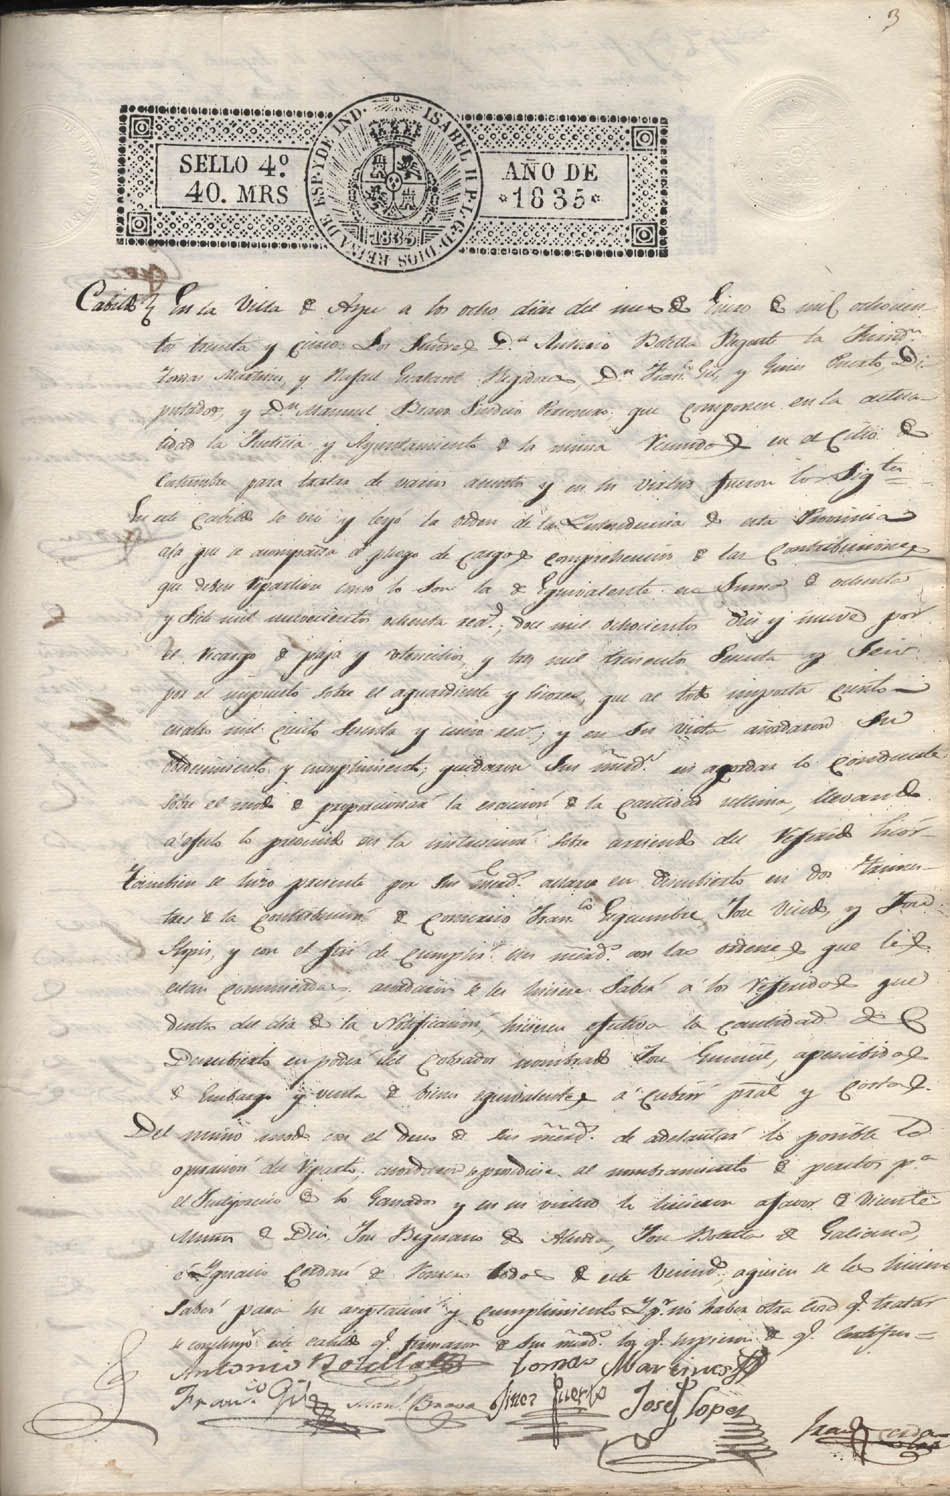 3
SELLO 4º
40. MRS
ISABEL II P. L. G. D. DIOS REINA DE ESP. Y DE IND.
1835
AÑO DE
1835
Cabildo En la Villa de Aspe a los ocho dias del mes de Enero de mil ochocien
tos treinta y cinco: Los Señores Dn Antonio Botella Regente la Jurisdn
Tomas Martinez, y Rafael Regidores, Dn Franco Gil, y Gines Puerto, Di
putados, y Dn Manuel Bravo Sindico Personero, que componen en la actua
lidad la Justicia y Ayuntamiento de la misma reunidos en el Citio de
Costumbre para tratar de varios asuntos y en su virtud fueron los Sigtes
En este Cabildo se vió y leyó la orden de la Yntendencia de esta Provincia
a la que se acompaña el pliego de cargos comprehensivo de las Contribuciones
que deben repartirse como lo son la de Equivalente en Suma de ochenta
y Siete mil novecientos ochenta rs; doce mil ochocientos diez y nueve por
el recargo de paja y utencilios, y tres mil trescientos Sesenta y Seis
por el impuesto sobre el aguardiente y licores, que al todo importa ciento
cuatro mil ciento Sesenta y cinco rs; y en su vista acordaron Su
obedecimiento y cumplimiento; quedaron Sus mrds. en acordar lo conducente
sobre el modo de proporcionar la esaccion de la cantidad ultima, llevando
a efecto lo prevenido en la instruccion sobre arriendo del referido licor
Tambien se hizo presente por Sus mrds. allarse en descubierto en dos trimes
tres de la contribucion de Franco José y José
y con el fin de cumplir sus mrds. con las ordenes que les
estan comunicadas, acordaron se les hiciera Saber á los referidos que
dentro del dia de la Notificacion, hicieran efectiva la cantidad de
Descubierto en poder del Cobrador nombrado José apercibidos
de Embargo y venta de bienes equivalentes á cubrir pral y costas.
Del mismo modo con el deseo de Sus mrds. de adelantar lo posible la
operacion del reparto, acordaron se procediera al nombramiento de peritos pa
el de los Ganados y en su virtud le hicieron a favor de Vicente
de Dios, José de José Botella de Galiana,
é Ygnacio Cerdán de todos de este Vecindo, a quien se les hiciera
Saber para su aceptacion y cumplimiento. Y pr no haber otra cosa q. tratar
se concluyó este cabildo q. firmaron de Sus mrds. los q. supieron de q. Certifico=
Antonio Botella Tomas Martinez
Franco Gil Manl Bravo Gines Puerto José Lopez